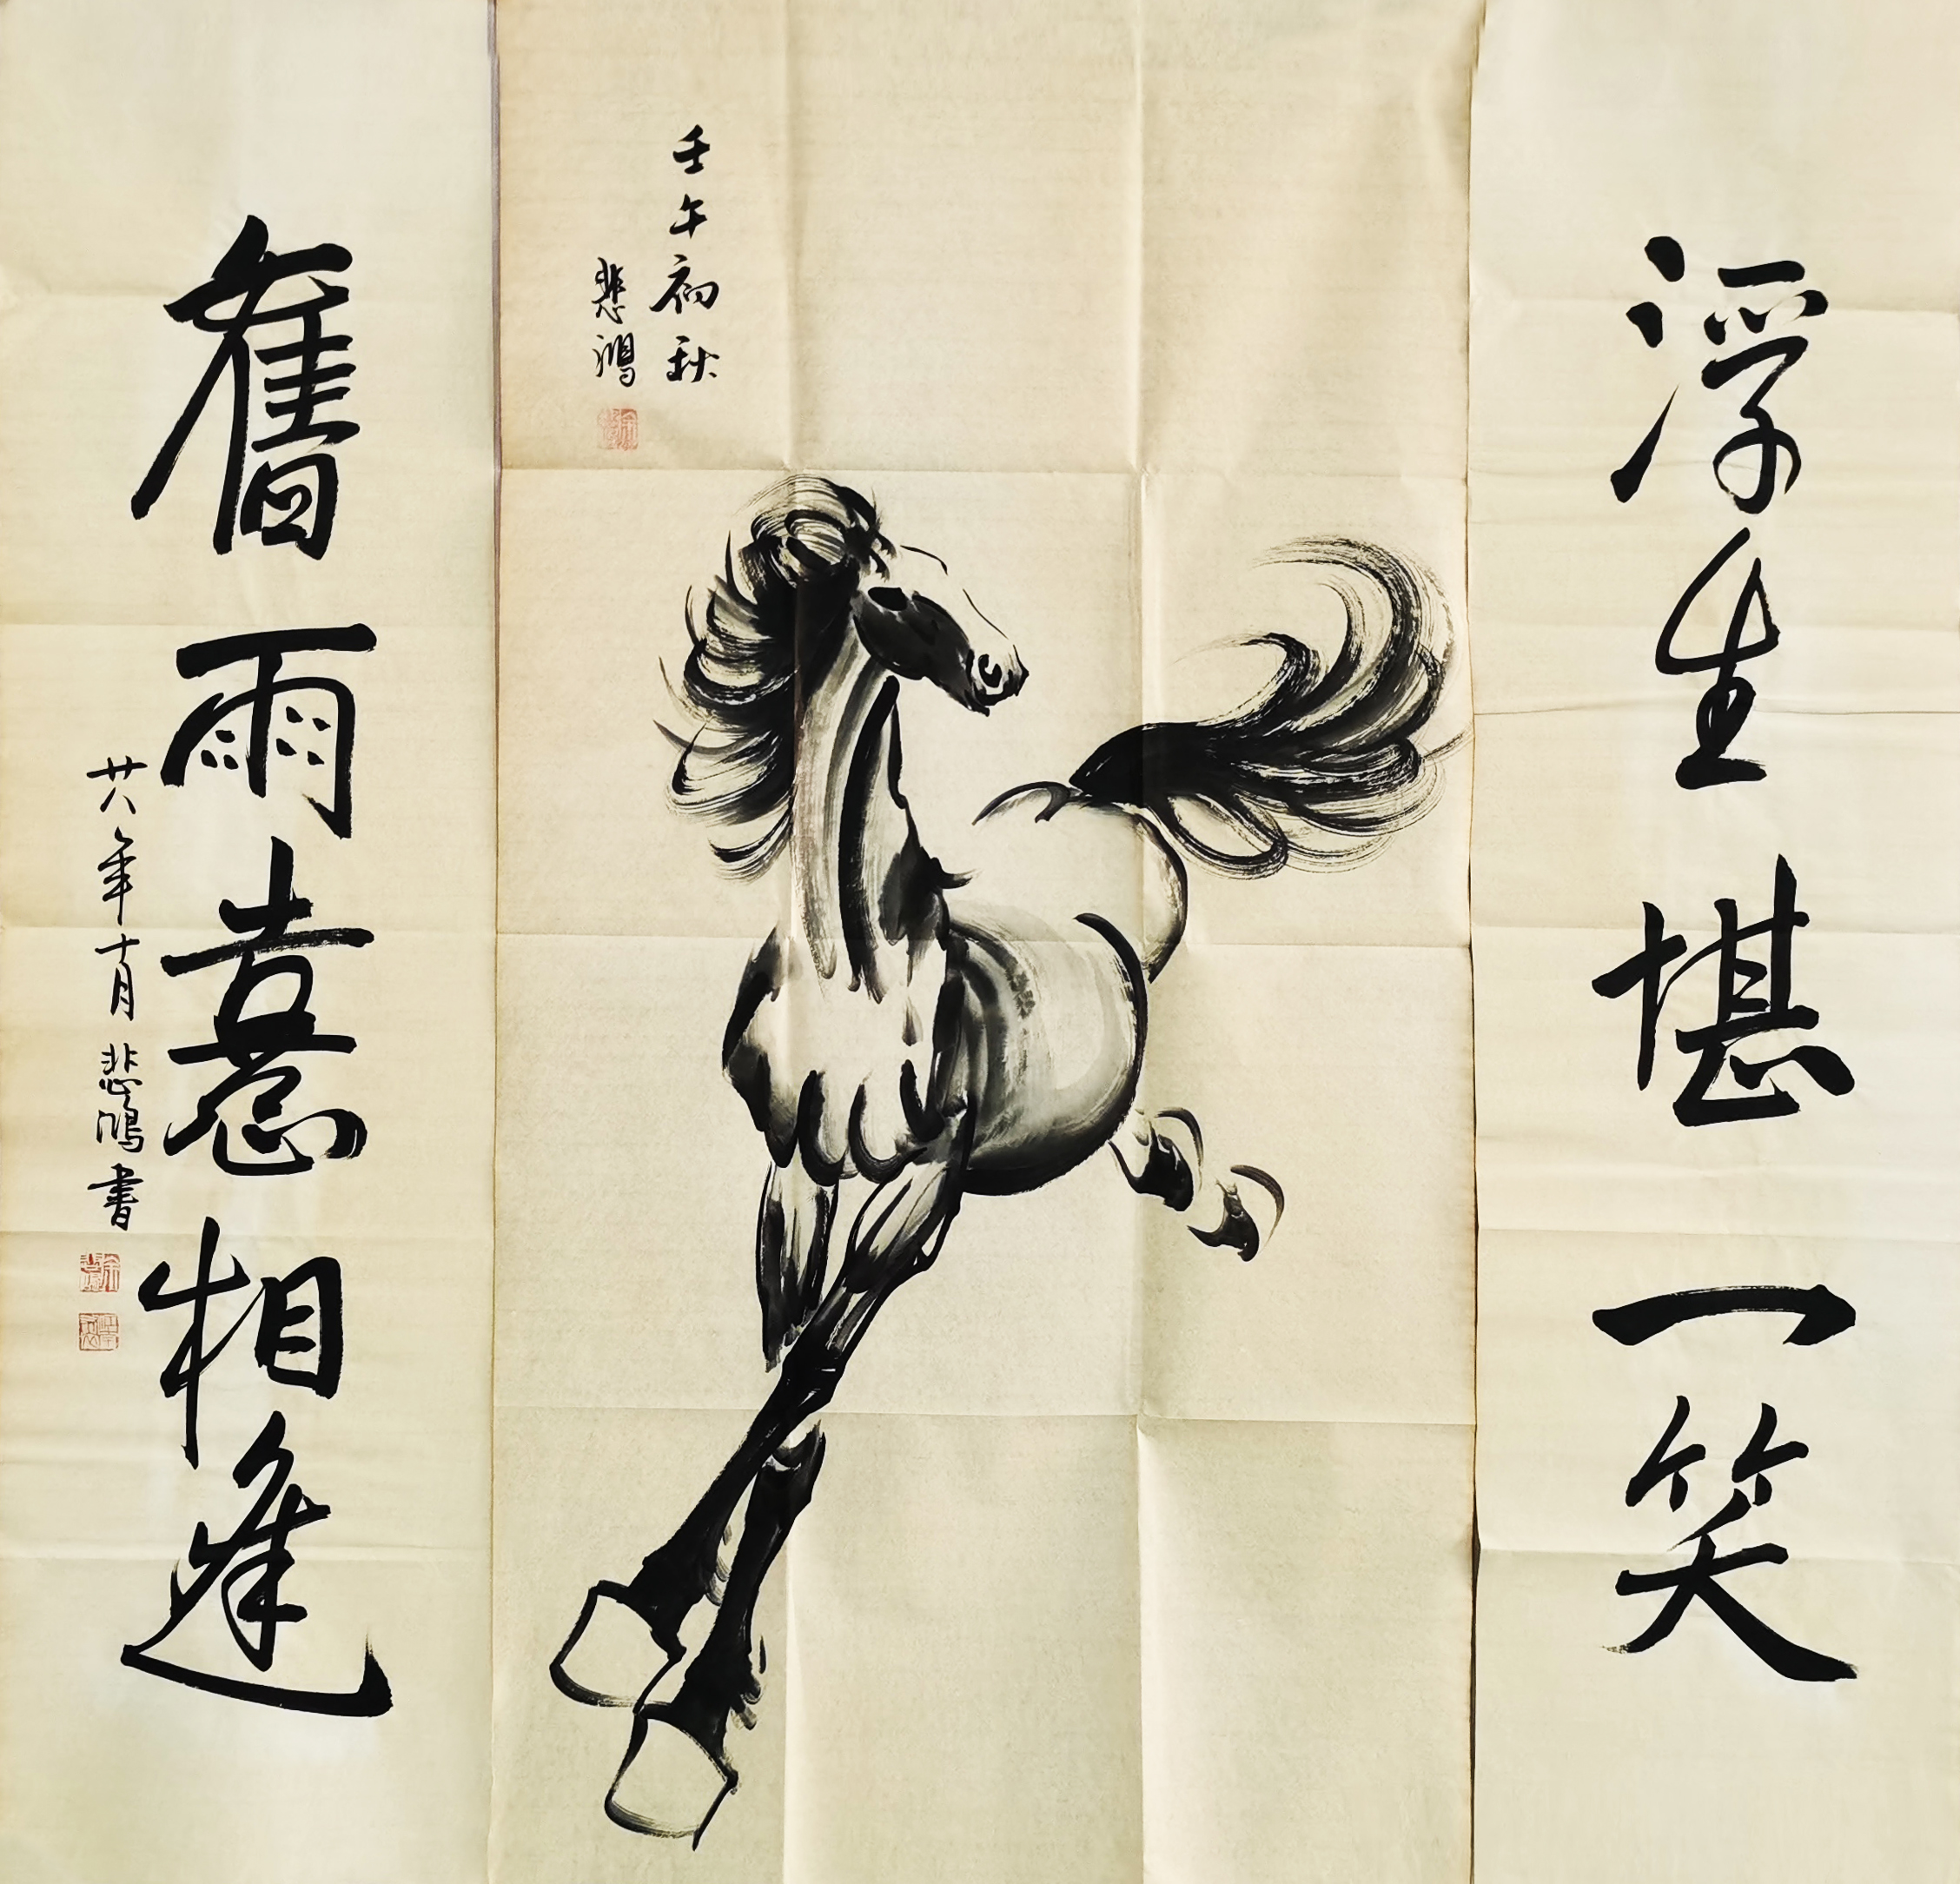 浮生堪一笑
壬午初秋
悲鴻
舊雨憙相逢
廿八年十月悲鴻書